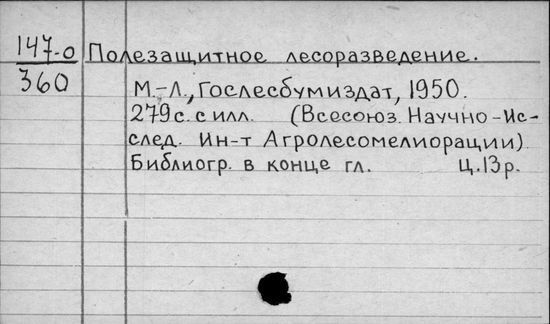 147-о Полезащитное лесоразведение.
360
М.-Л., Гослесбумиздат, 1950.
279 с. с илл. (Всесоюз. Научно-Ис-
след. Ин-т Агролесомелиорации)
Библиогр. в конце гл. Ц. 13 р.